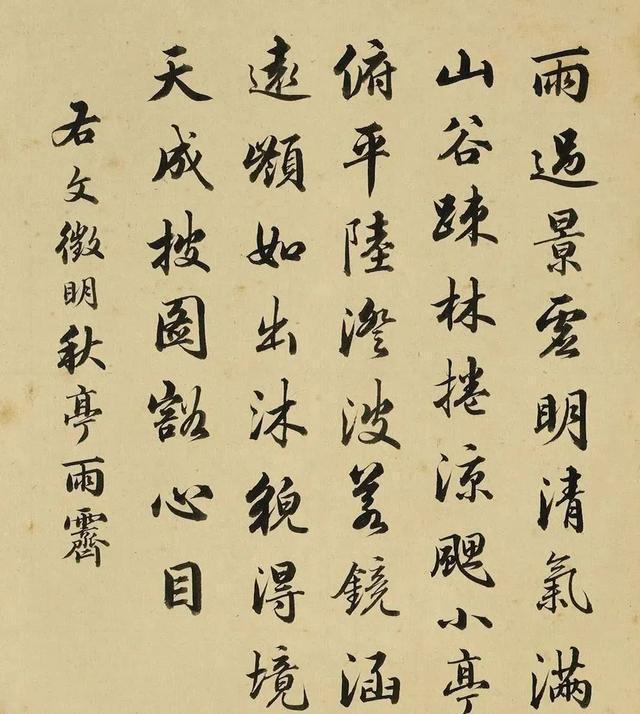 雨過景虛明清氣滿
山谷疎林捲涼颸小亭
俯平陸澄波若鏡涵
遠如出沐貌得境
天成披圖豁心目
右文徵明秋亭雨霽